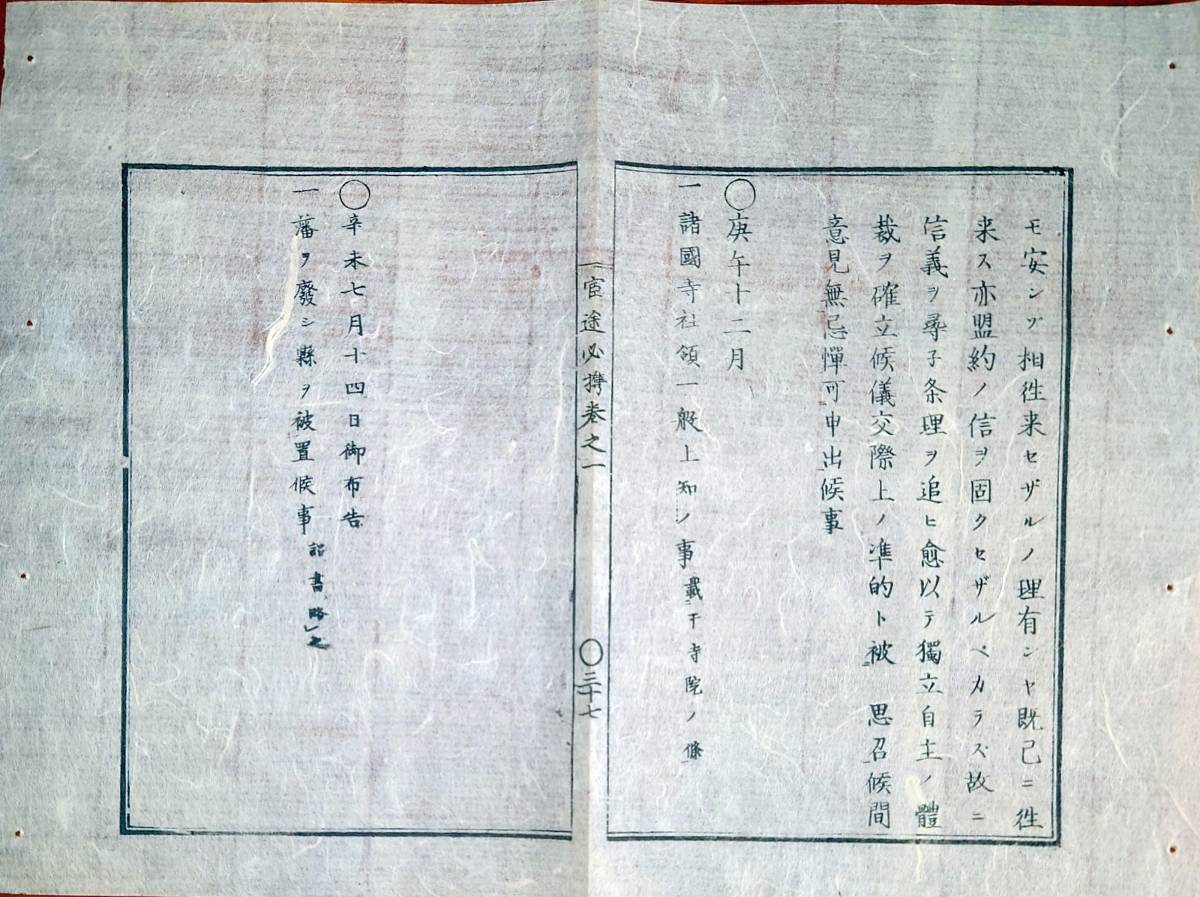 モ安ンゾ相徃来セザルノ理有ンヤ既已ニ徃
来ス亦盟約ノ信ヲ固クセザルベカラズ故ニ
信義ヲ尋子条理ヲ追ヒ愈以テ獨立自主ノ體
裁ヲ確立候儀交際上ノ準的ト被　思召候間
意見無忌憚可申出候事
〇庚午十二月
一諸國寺社領一般上知ノ事載于寺院ノ條
官途必携巻之一　〇三十七
〇辛未七月十四日御布告
一藩ヲ廢シ縣ヲ被置候事詔書略レ之